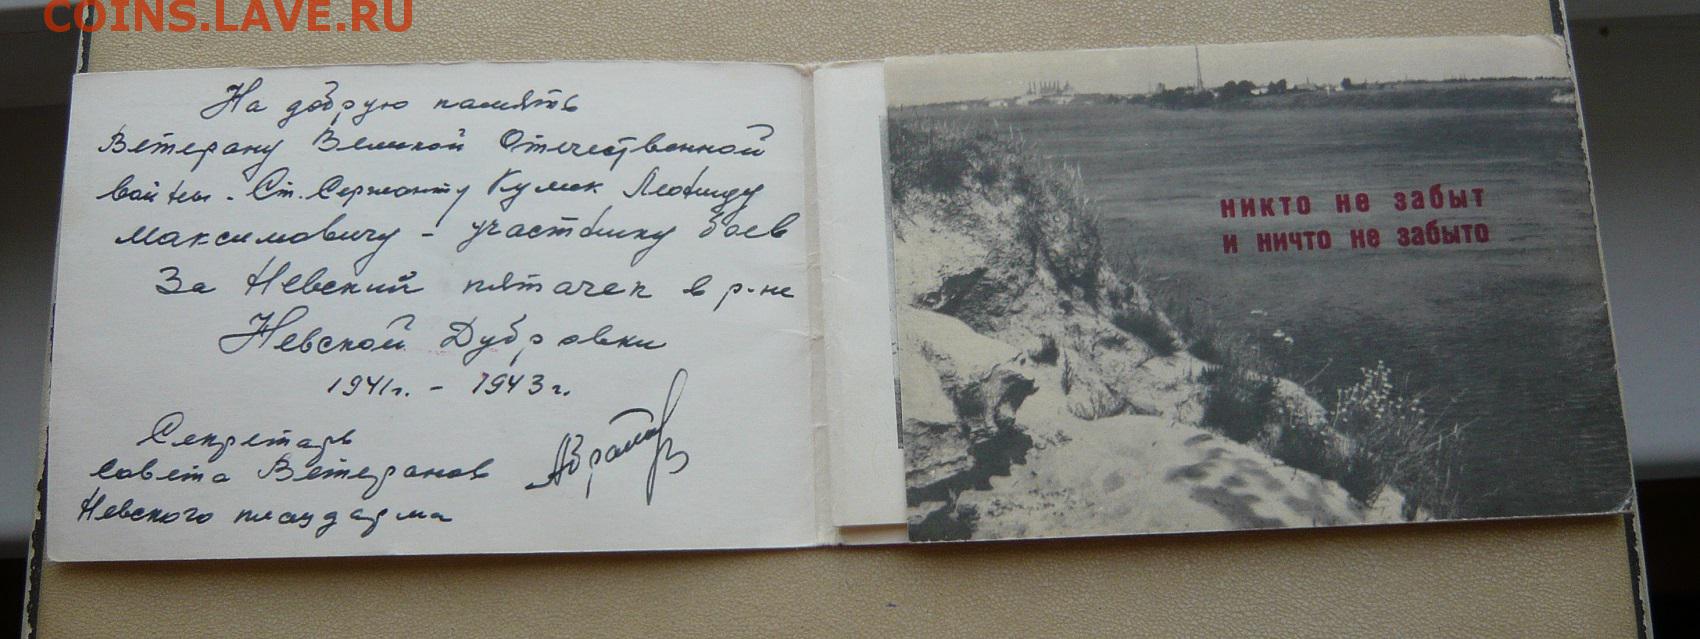 COINS.LAVE.RU
На добрую память
Ветерану Великой Отечественной
войны. Ст. Сержанту Кулик Леониду
Максимовичу - участнику боев
За Невский пятачек в р-не
Невской Дубровки
1941г. - 1943г.
Секретарь
Совета Ветеранов
Невского плацдарма
никто не забыт
и ничто не забыто